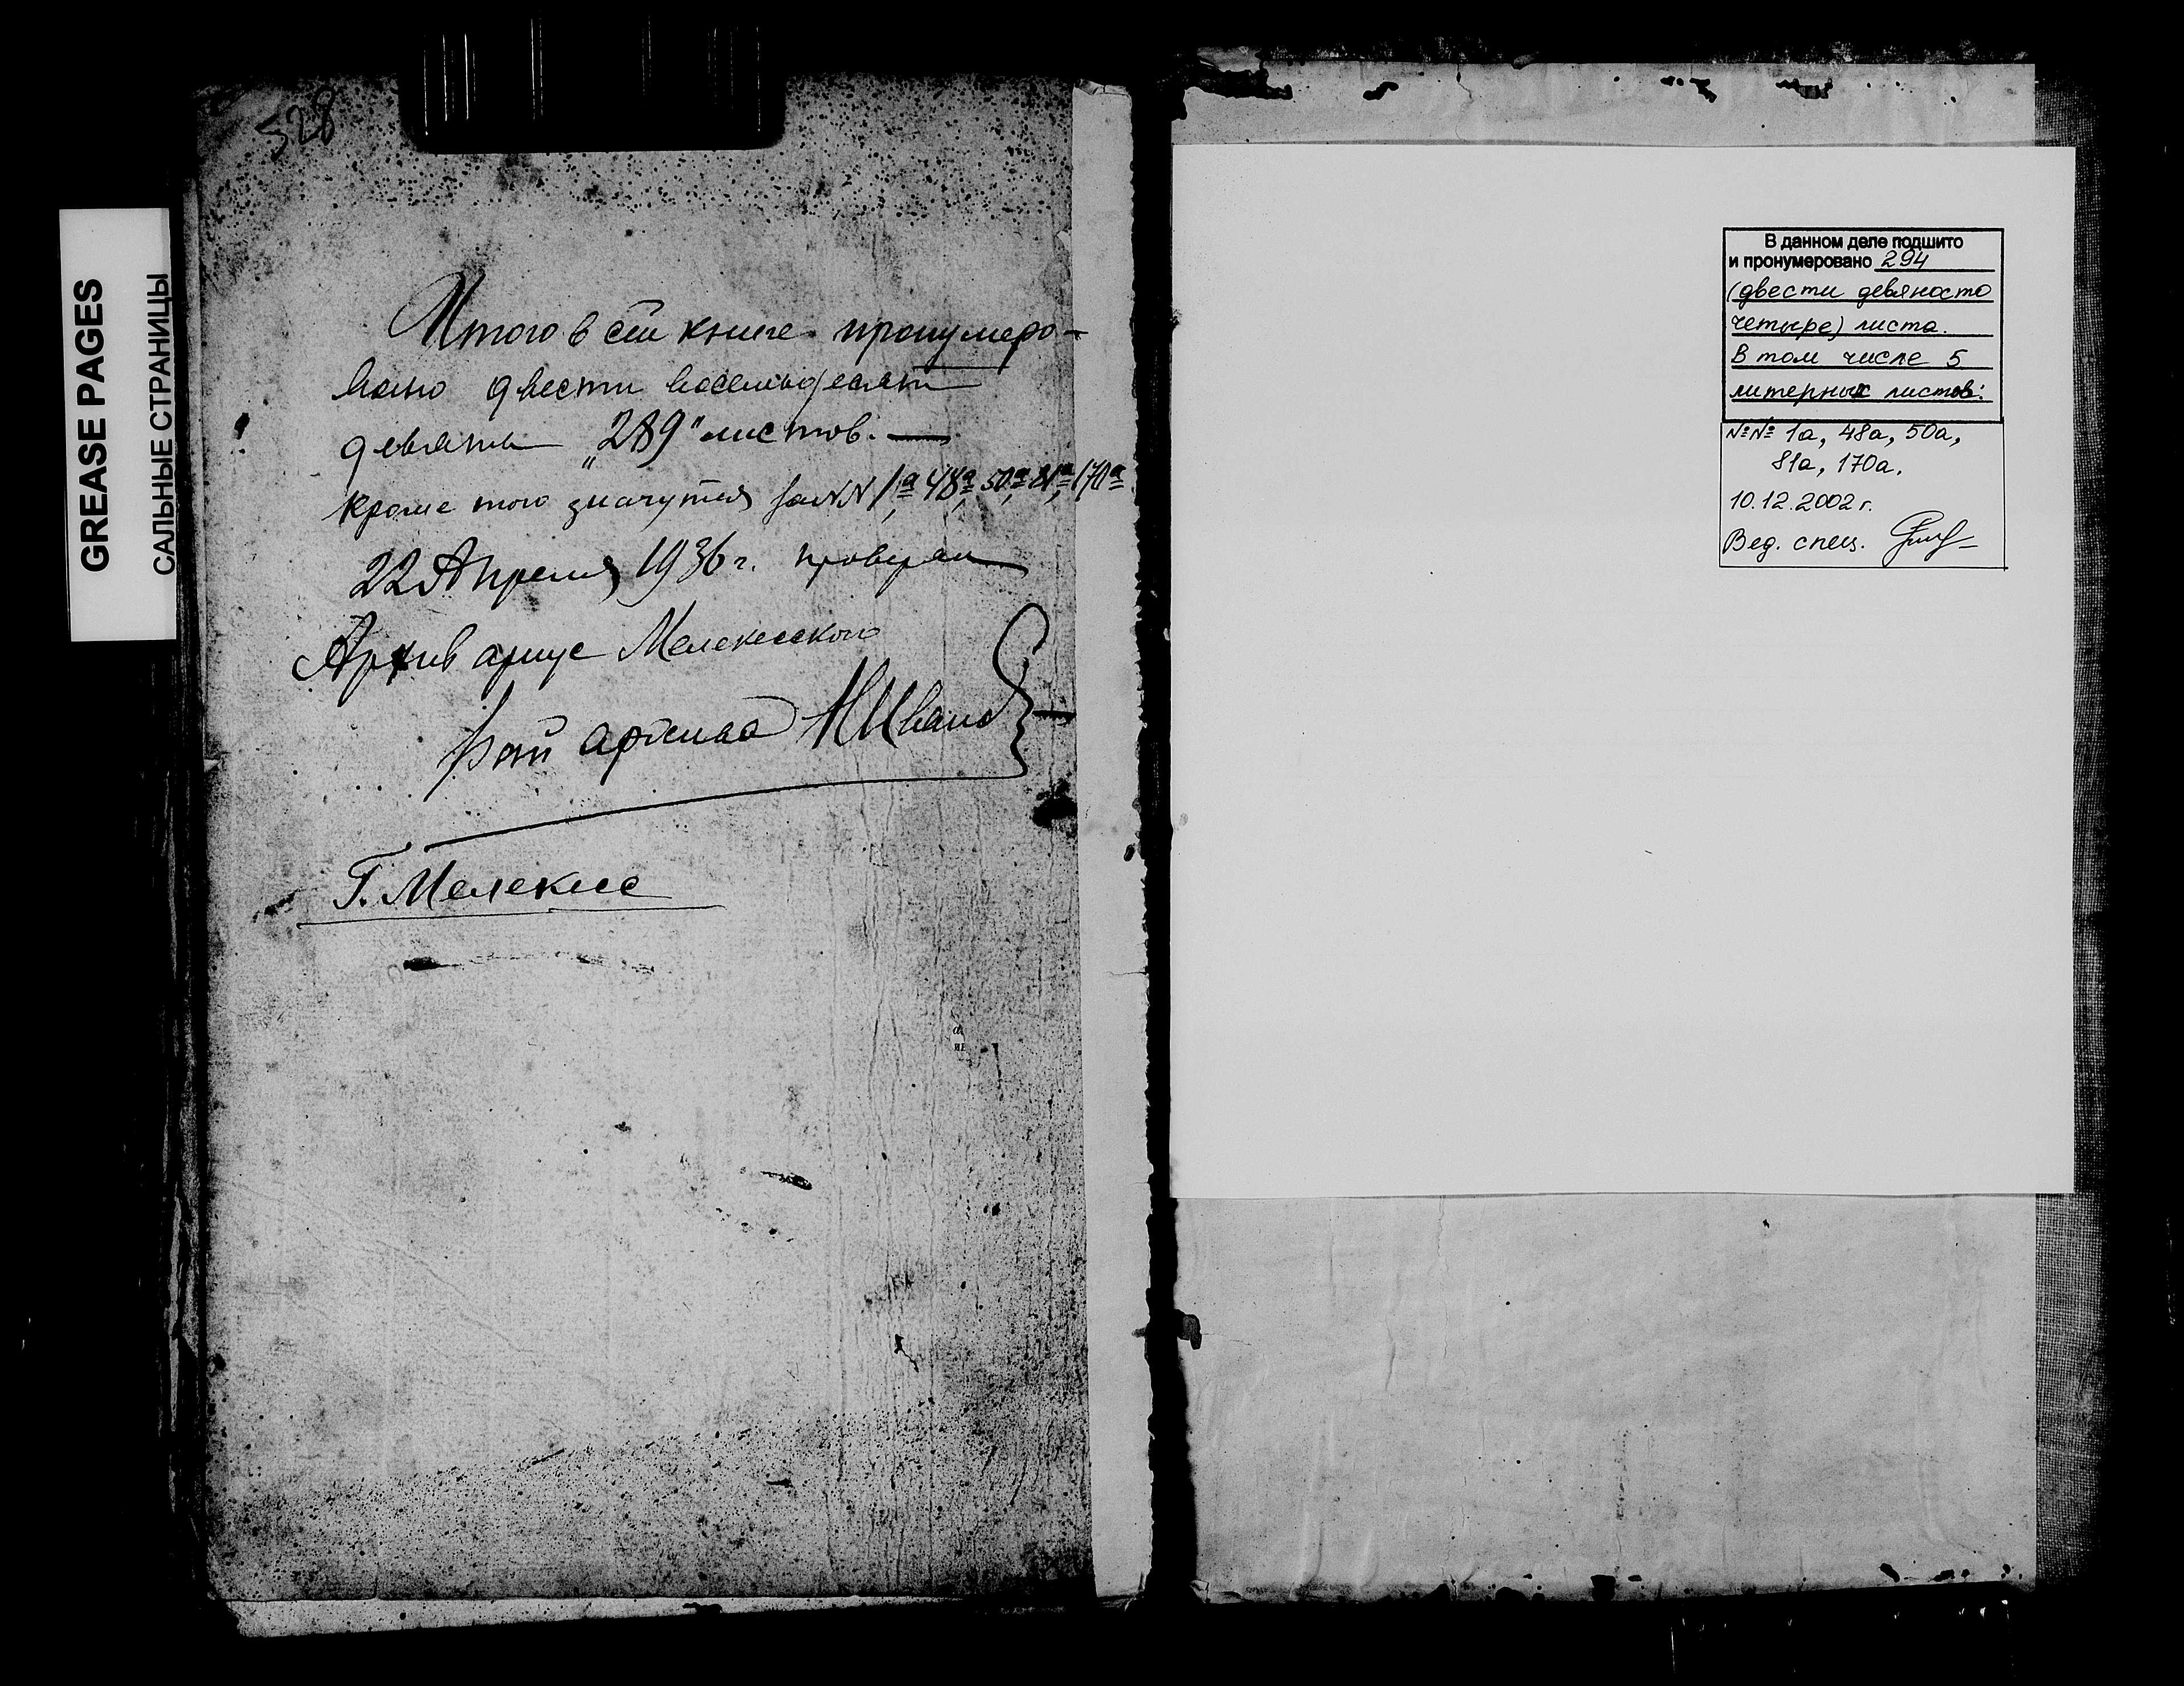 GREASE PAGES
САЛЬНЫЕ СТРАНИЦЫ
528
Итого в сей книге пронумеро-
вано двести восемьдесят
девять "289" листов. —
кроме того значутся за NN 1а, 48а, 50а, 81а, 170а
22 Апреля 1936 г. проверил
Архивариус Мелекесского
Рай архива НИванов
Г. Мелекесс
В данном деле подшито
и пронумеровано 294
(двести девяносто
четыре) листа.
В том числе 5
литерных листов:
№№ 1а, 48а, 50а,
81а, 170а.
10.12.2002 г.
Вед. спец.